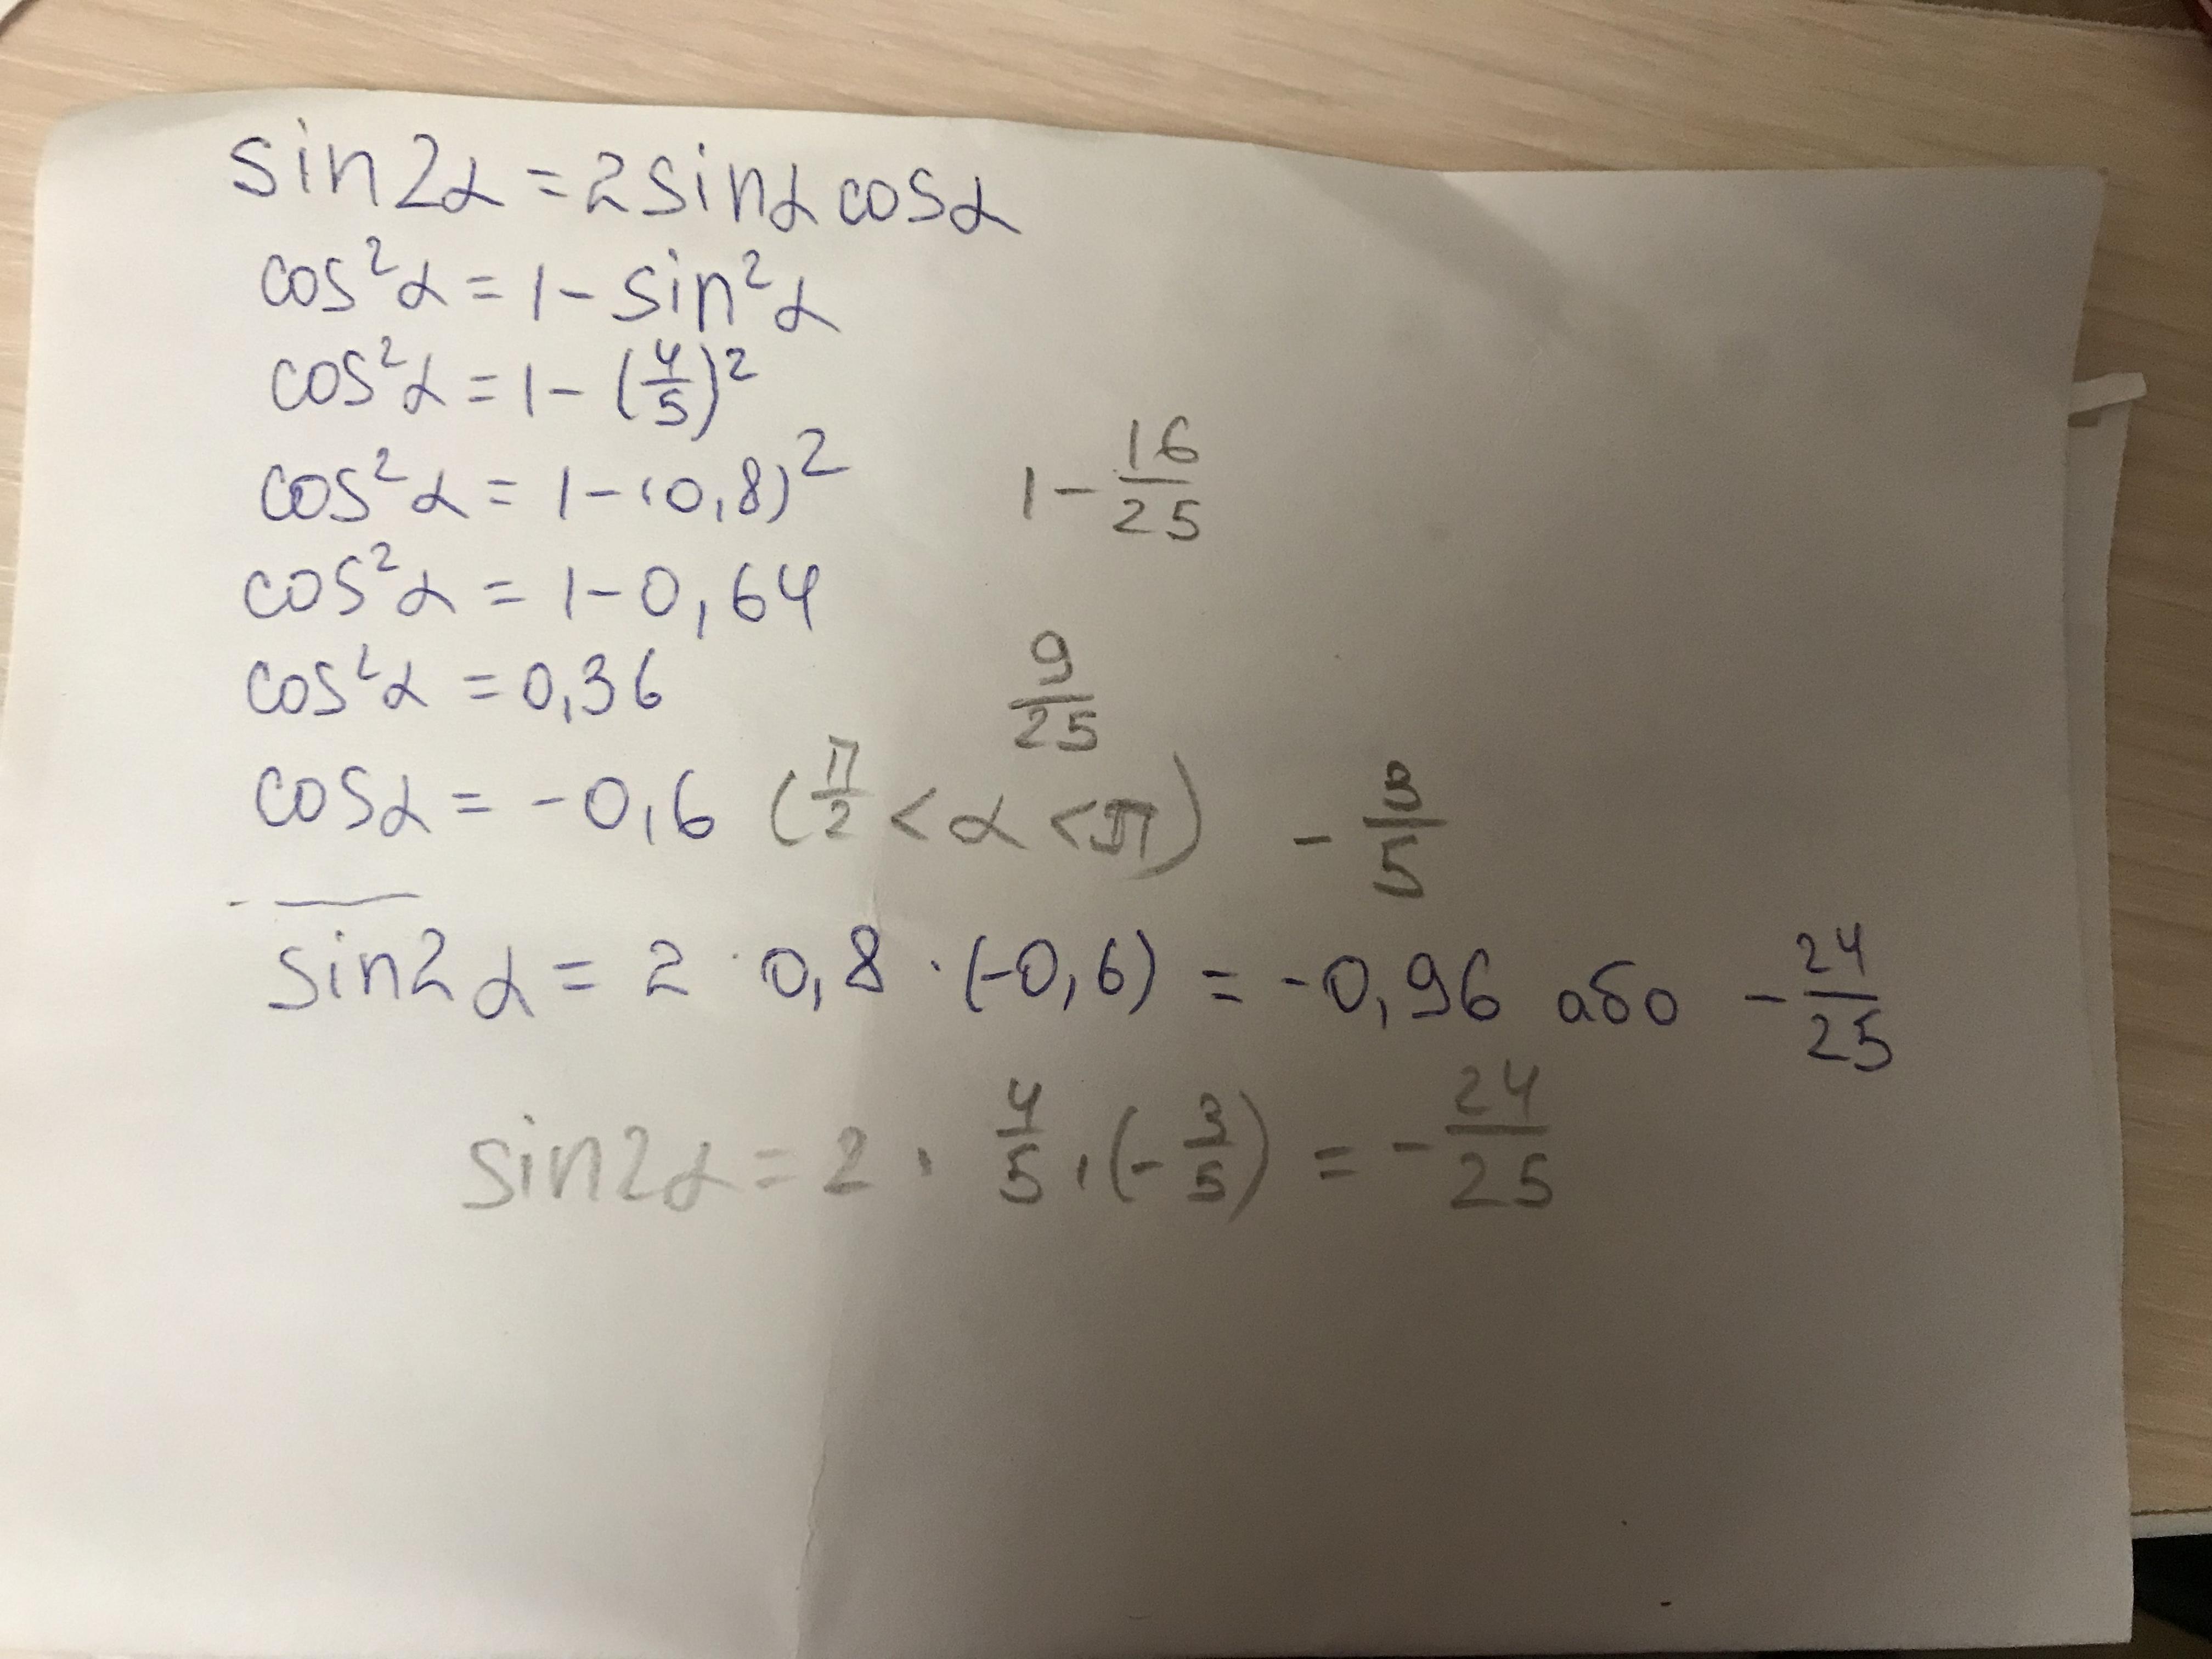 sin2α = 2sinα cosα
cos²α = 1 - sin²α
cos²α = 1 - (4/5)²
cos²α = 1 - (0,8)²   1 - 16/25
cos²α = 1 - 0,64
cos²α = 0,36   9/25
cosα = -0,6 (π/2 < α < π)   - 3/5
sin2α = 2 · 0,8 · (-0,6) = -0,96 або - 24/25
sin2α = 2 · 4/5 · (- 3/5) = - 24/25